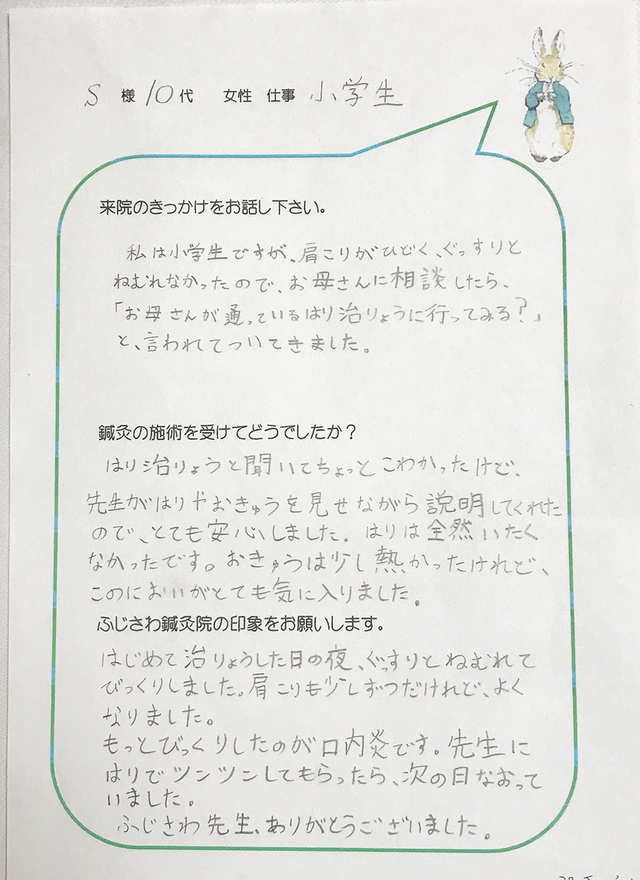 S 様 10代 女性 仕事 小学生
来院のきっかけをお話し下さい。
私は小学生ですが、肩こりがひどく、ぐっすりと
ねむれなかったので、お母さんに相談したら、
「お母さんが通っているはり治りょうに行ってみる?」
と、言われてついてきました。
鍼灸の施術を受けてどうでしたか？
はり治りょうと聞いてちょっとこわかったけど、
先生がはりやおきゅうを見せながら説明してくれた
ので、とても安心しました。はりは全然いたく
なかったです。おきゅうは少し熱かったけれど、
このにおいがとても気に入りました。
ふじさわ鍼灸院の印象をお願いします。
はじめて治りょうした日の夜、ぐっすりとねむれて
びっくりしました。肩こりも少しずつだけれど、よく
なりました。
もっとびっくりしたのが口内炎です。先生に
はりでツンツンしてもらったら、次の日なおって
いました。
ふじさわ先生、ありがとうございました。